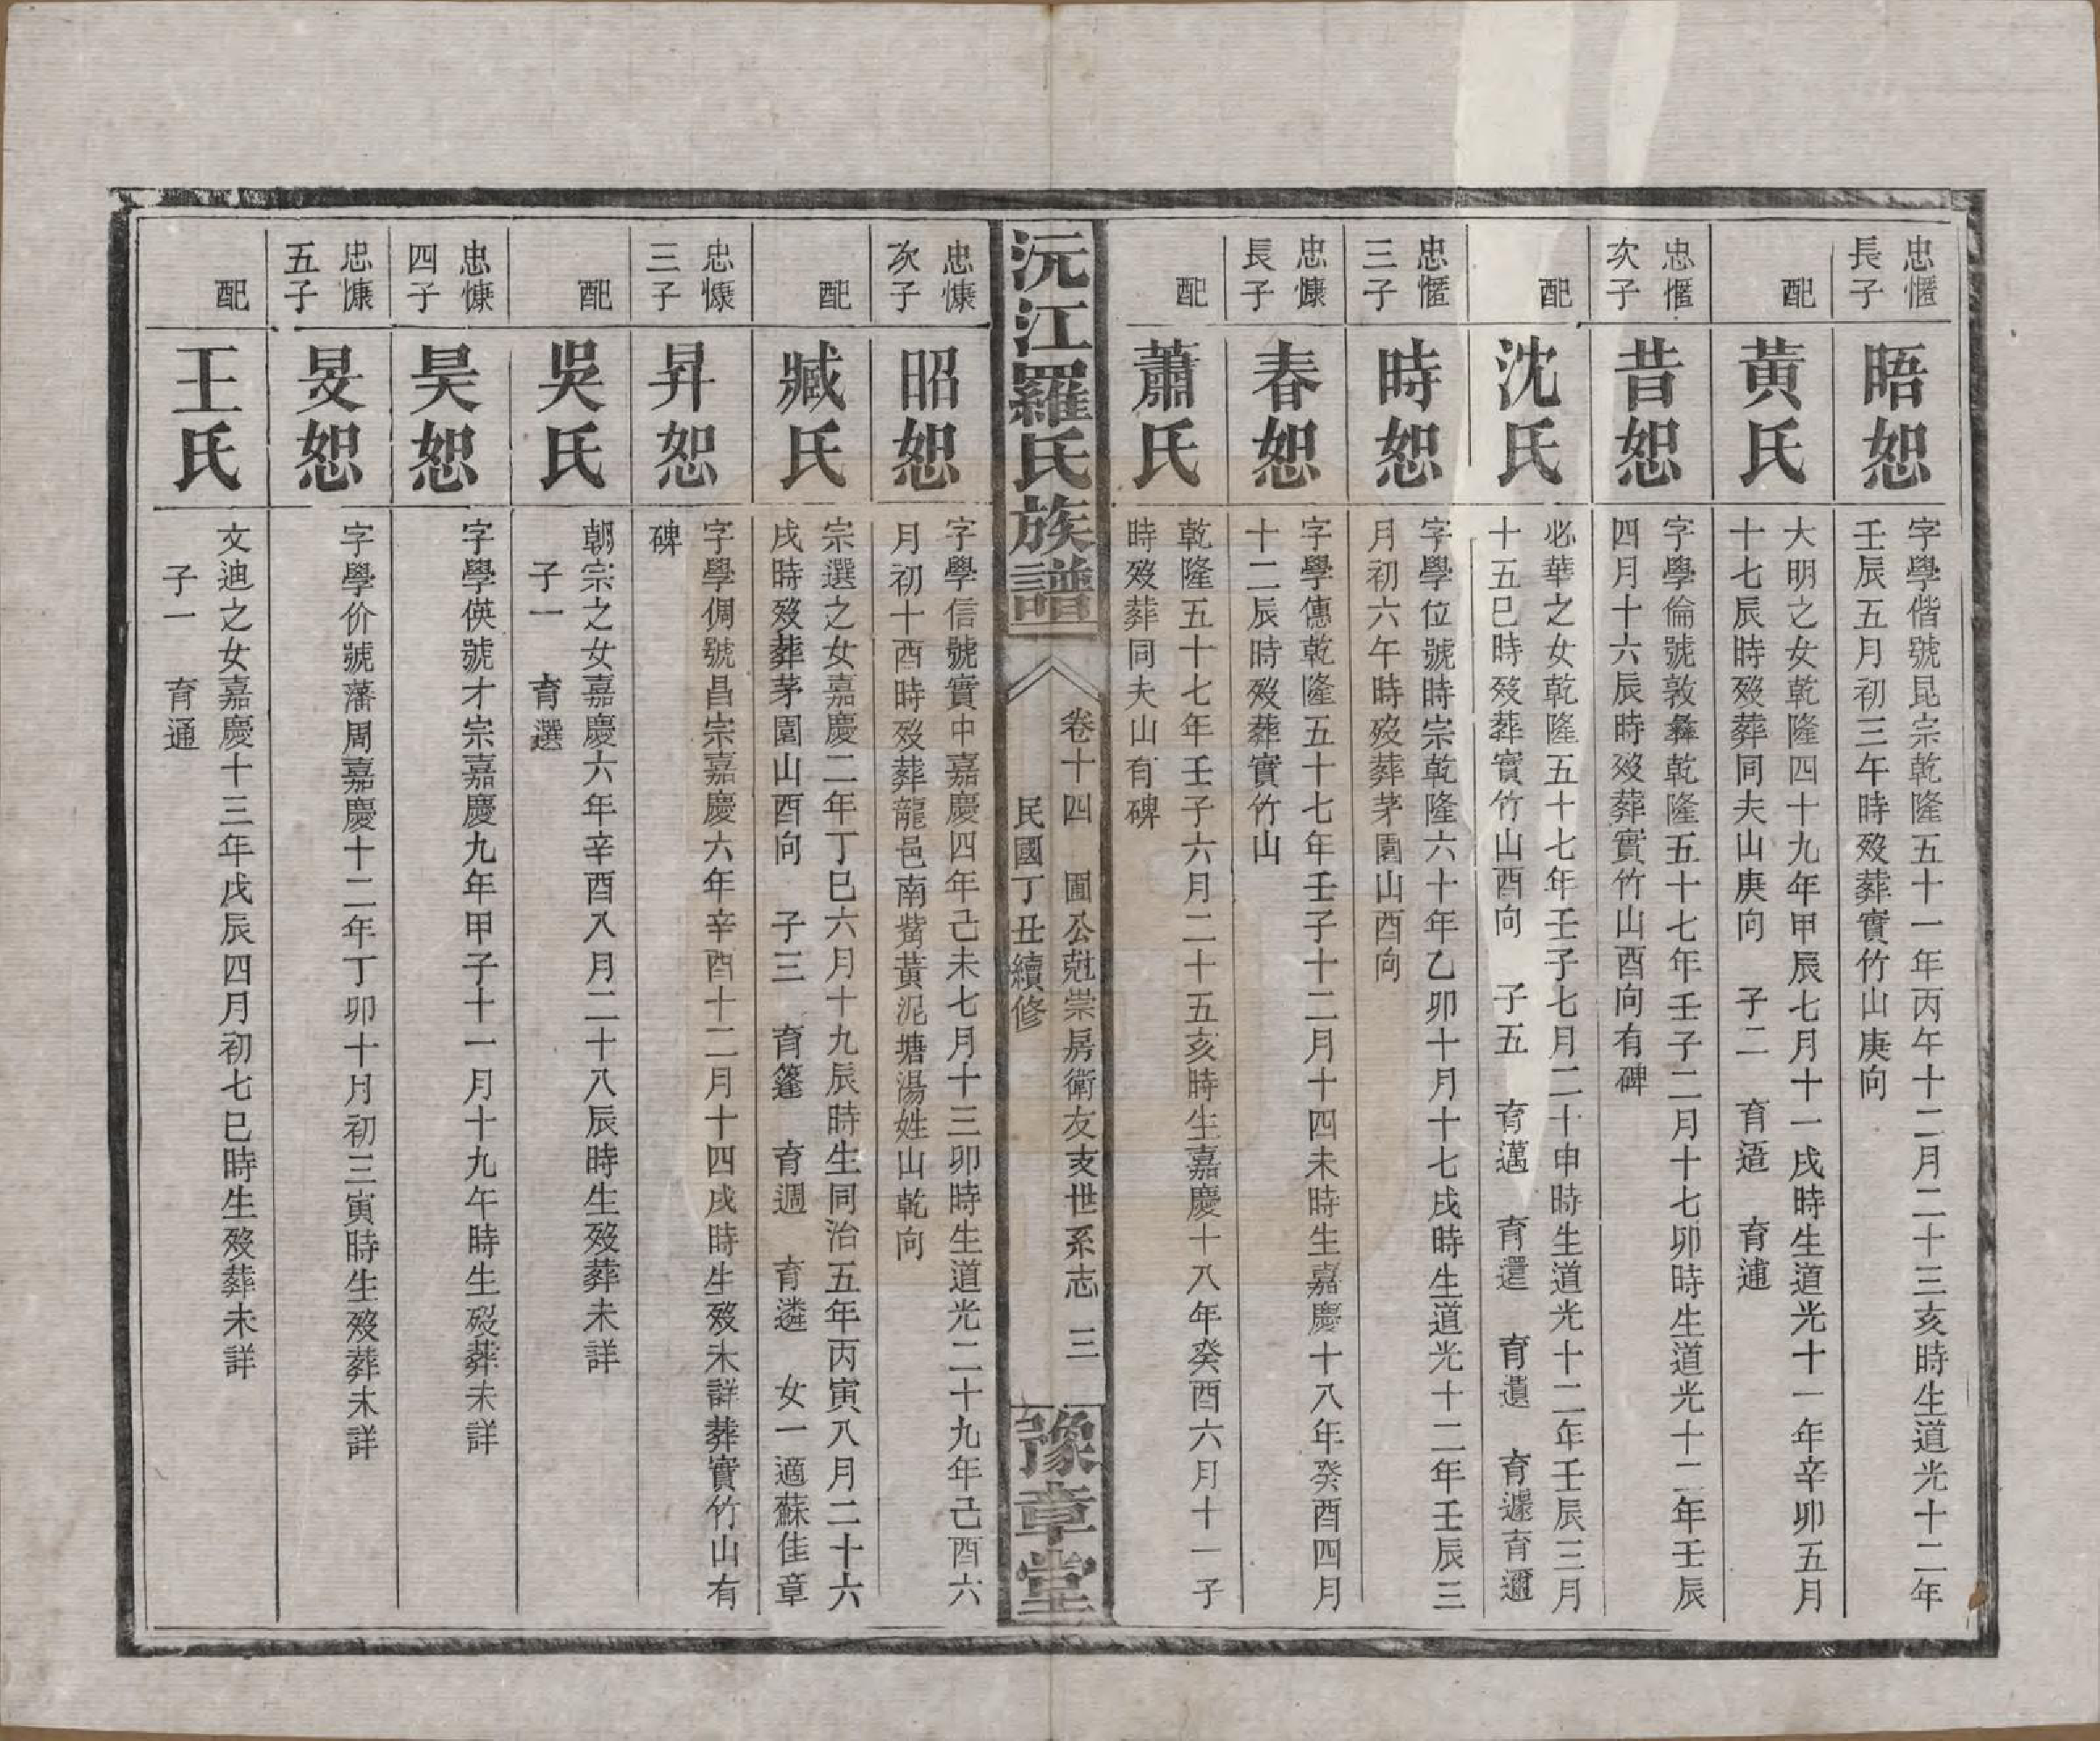 忠愜
長子
晤恕
字學偕號昆宗乾隆五十一年丙午十二月二十三亥時生道光十二年
壬辰五月初三午時歿葬實竹山庚向
配
黃氏
大明之女乾隆四十九年甲辰七月十一戌時生道光十一年辛卯五月
十七辰時歿葬同夫山庚向 子二 育逪 育逋
忠愜
次子
昔恕
字學倫號敦彝乾隆五十七年壬子二月十七卯時生道光十二年壬辰
四月十六辰時歿葬實竹山酉向有碑
配
沈氏
必華之女乾隆五十七年壬子七月二十申時生道光十二年壬辰三月
十五巳時歿葬實竹山酉向 子五 育邁 育還 育遺 育遷 育邇
忠愜
三子
時恕
字學位號時宗乾隆六十年乙卯十月十七戌時生道光十二年壬辰三
月初六午時歿葬茅園山酉向
忠慷
長子
春恕
字學傳乾隆五十七年壬子十二月十四未時生嘉慶十八年癸酉四月
十二辰時歿葬實竹山
配
蕭氏
乾隆五十七年壬子六月二十五亥時生嘉慶十八年癸酉六月十一子
時歿葬同夫山有碑
沅江羅氏族譜
卷十四 圖公尅崇房衛友支世系志 三
民國丁丑續修
豫章堂
忠慷
次子
昭恕
字學信號實中嘉慶四年己未七月十三卯時生道光二十九年己酉六
月初十酉時歿葬龍邑南觜黃泥塘湯姓山乾向
配
臧氏
宗選之女嘉慶二年丁巳六月十九辰時生同治五年丙寅八月二十六
戌時歿葬茅園山酉向 子三 育籧 育週 育遴 女一適蘇佳章
忠慷
三子
昇恕
字學倜號昌宗嘉慶六年辛酉十二月十四戌時生歿未詳葬實竹山有
碑
配
吳氏
朝宗之女嘉慶六年辛酉八月二十八辰時生歿葬未詳
子一 育選
忠慷
四子
昊恕
字學偀號才宗嘉慶九年甲子十一月十九午時生歿葬未詳
忠慷
五子
旻恕
字學价號藩周嘉慶十二年丁卯十月初三寅時生歿葬未詳
配
王氏
文迪之女嘉慶十三年戊辰四月初七巳時生歿葬未詳
子一 育通